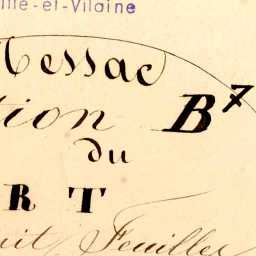 ille-et-Vilaine
Messac
tion B7
du
RT
uit Feuilles